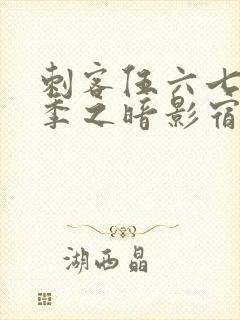 刺客伍六七
季之暗影宿
湖西晶